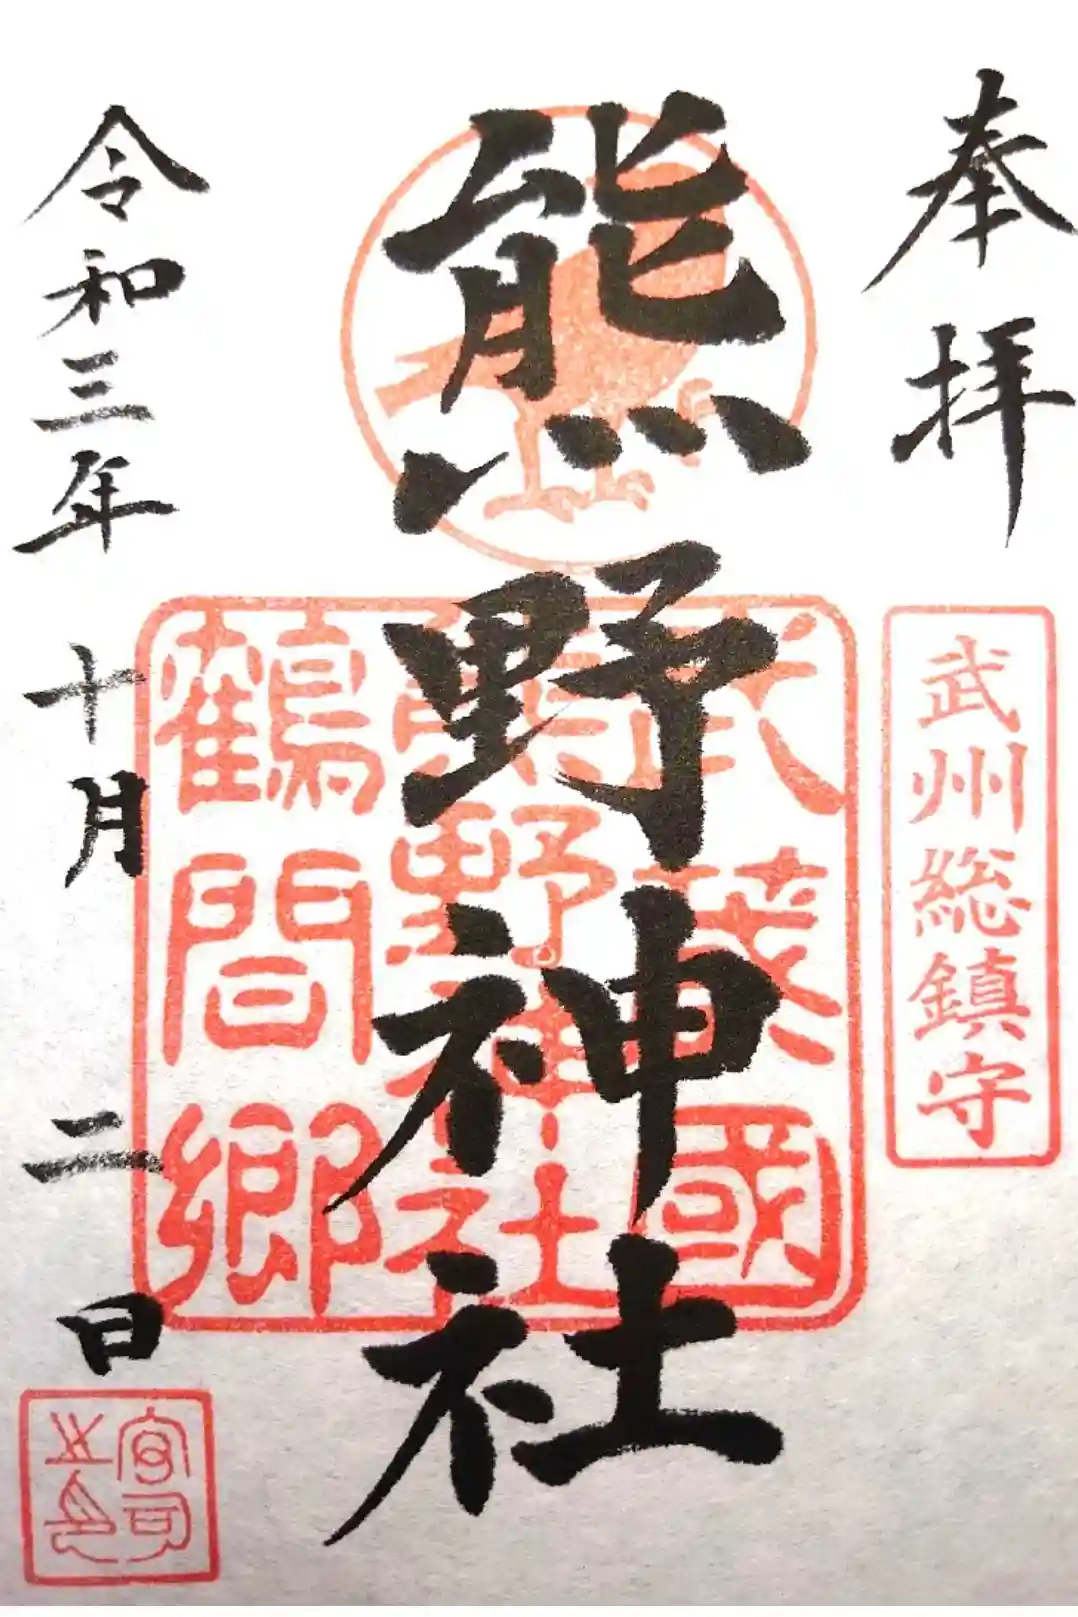 奉拝
武州総鎮守
熊野神社
武蔵國
熊野神社
鶴間郷
令和三年 十月 二日
宮司之印